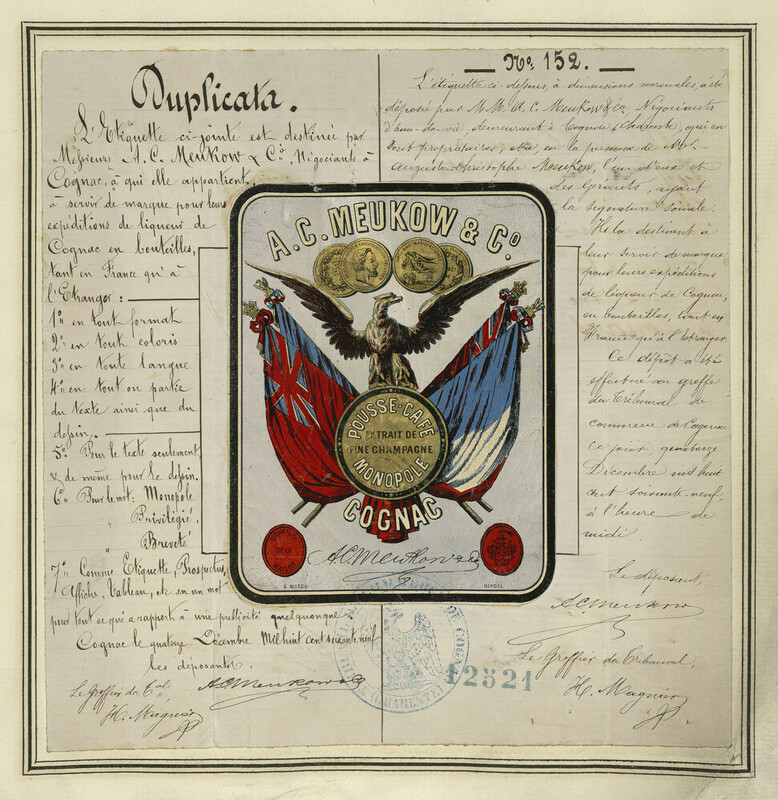 Duplicata.
L'Etiquette ci-jointe est destinée par
Messieurs A. C. Meukow & Co, Négociants à
Cognac, à qui elle appartient,
à servir de marque pour leurs
expéditions de liqueur de
Cognac en bouteilles,
tant en France qu'à
l'Etranger :
1o en tout format
2o en tout coloris
3o en toute langue
4o en tout ou partie
du texte ainsi que du
dessin.
5o Pour le texte seulement
& de même pour le dessin.
6o Pour le mot : Monopole
" Privilégié.
" Breveté
7o Comme Etiquette, Prospectus,
Affiche, Tableau, etc en un mot
pour tout ce qui a rapport à une publicité quelconque
Cognac le quatorze Décembre Mil huit cent soixante neuf
les déposants :
Le Greffier du
A.C. Meukow & Co
H. Magnier
No. 152.
L'étiquette ci-dessus, à dimensions a été
déposée par M.M. A. C. Meukow & Co Négociants
d'eau-de-vie, demeurant à Cognac (Charente), qui en
sont propriétaires, en la personne de
Auguste Christophe Meukow, l'un d'eux et
des Gérants, ayant
la signature sociale.
Ils la destinent à
leur servir de marque
pour leurs expéditions
de liqueur de Cognac,
en bouteilles, tant en
France qu'à l'Etranger.
Ce dépôt a été
effectué au greffe
du Tribunal de
commerce de Cognac
ce jour, quatorze
Décembre mil huit
cent soixante-neuf,
à l'heure de
midi.
Le déposant,
A.C. Meukow
Le Greffier du Tribunal,
H. Magnier
A.C. MEUKOW & Co
POUSSE-CAFÉ
EXTRAIT DE
FINE CHAMPAGNE
MONOPOLE
COGNAC
SIGNATURE
DE LA
MAISON
A.C. Meukow & Co
DÉPOSÉ
DE COGNAC
(CHARENTE)
12521